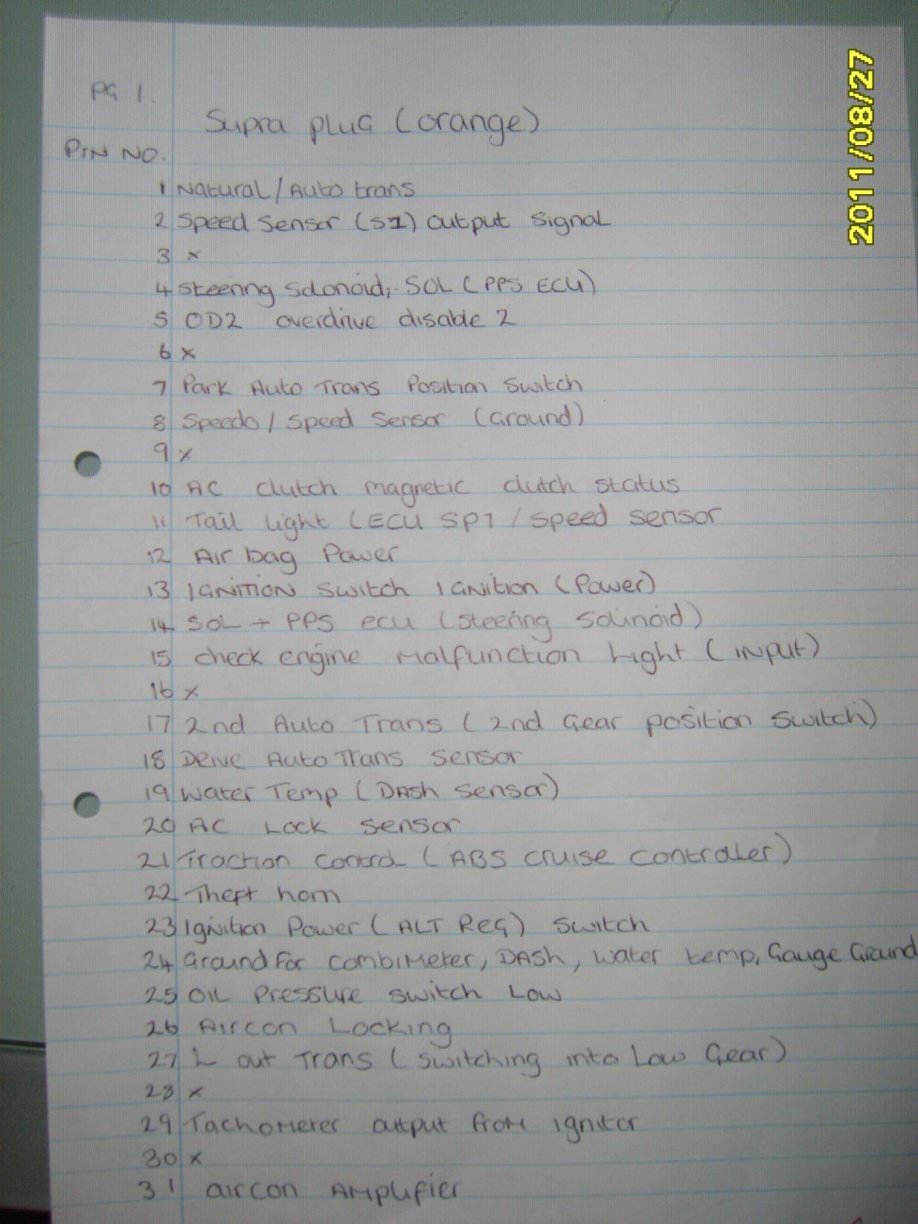 PG 1.
Supra plug (orange)
PIN NO.
1 Natural/Auto trans
2 Speed Sensor (S1) output signal
3 x
4 Steering Solonoid, SOL (PPS ECU)
5 OD2 overdrive disable 2
6 x
7 Park Auto Trans Position Switch
8 Speedo / Speed Sensor (Ground)
9 x
10 AC clutch magnetic clutch status
11 Tail light (ECU SP1 / speed sensor
12 Air bag Power
13 IGNITION Switch Ignition (Power)
14 SOL + PPS ecu (Steering Solinoid)
15 check engine Malfunction Light (INPUT)
16 x
17 2nd Auto Trans (2nd Gear position Switch)
18 Drive Auto Trans Sensor
19 Water Temp (DASH Sensor)
20 AC Lock Sensor
21 Traction Control (ABS cruise controller)
22 Theft horn
23 Ignition Power (ALT REG) Switch
24 Ground for combimeter, DASH, water temp, Gauge Ground
25 OIL Pressure switch Low
26 Aircon Locking
27 L out Trans (switching into Low Gear)
28 x
29 Tachometer output from ignitor
30 x
31 aircon Amplifier
2011/08/27